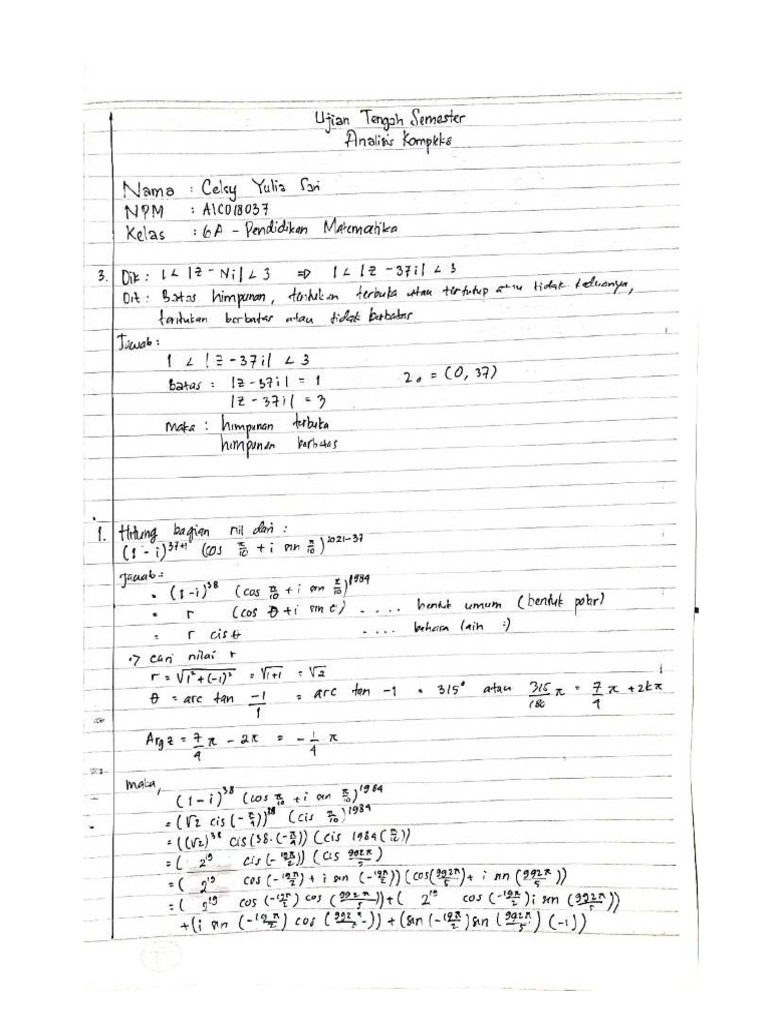 Ujian Tengah Semester
Analisis Kompleks
Nama : Celsy Yulia Sari
NPM : A1C018037
Kelas : 6A - Pendidikan Matematika
3. Dik : 1 < |z - Ni| < 3 ⇒ 1 < |z - 37i| < 3
Dit : Batas himpunan, tentukan terbuka atau tertutup atau tidak keduanya,
tentukan berbatas atau tidak berbatas
Jawab :
1 < |z - 37i| < 3
Batas : |z - 37i| = 1 z₀ = (0, 37)
|z - 37i| = 3
Maka : himpunan terbuka
himpunan berbatas
1. Hitung bagian riil dari :
(1 - i)^37+1 (cos π/10 + i sin π/10)^2021-37
Jawab :
• (1-i)^38 (cos π/10 + i sin π/10)^1984
• r (cos θ + i sin t) .... bentuk umum (bentuk polar)
= r cis θ .... bahasa lain :)
•> cari nilai r
r = √1² + (-1)² = √1+1 = √2
θ = arc tan -1/1 = arc tan -1 = 315° atau 315/180 π = 7/4 π + 2kπ
Arg z = 7/4 π - 2π = -1/4 π
Maka,
(1-i)^38 (cos π/10 + i sin π/10)^1984
= (√2 cis (-π/4))^38 (cis π/10)^1984
= ((√2)^38 cis(38.(-π/4)) (cis 1984(π/10))
= ( 2^19 cis (-19π/2)) (cis 992π/5)
= ( 2^19 cos (-19π/2) + i sin (-19π/2)) (cos(992π/5) + i sin (992π/5))
= ( 2^19 cos (-19π/2) cos (992π/5)) + ( 2^19 cos (-19π/2) i sin (992π/5))
+ (i sin (-19π/2) cos (992π/5)) + (sin (-19π/2) sin (992π/5) (-1))